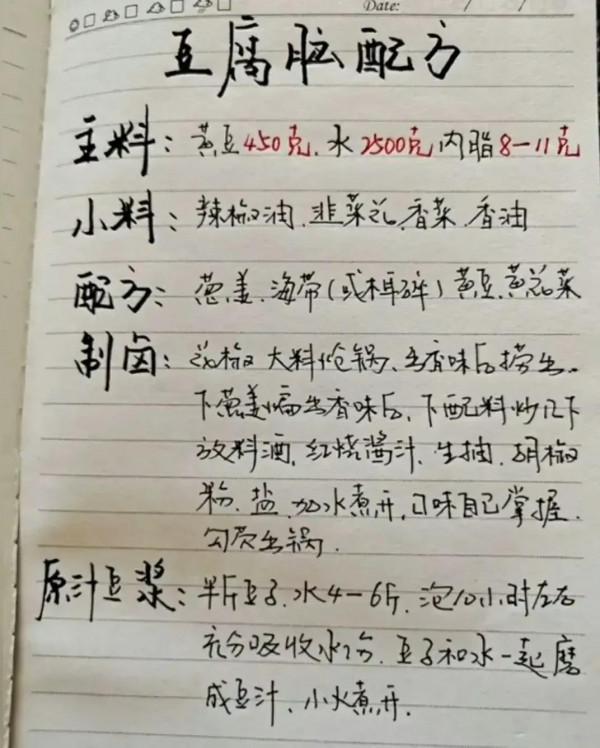 Date: / /
豆腐脑配方
主料：黄豆450克、水2500克内脂8-11克
小料：辣椒油、韭菜花、香菜、香油
配方：葱姜、海带(或木耳碎)黄豆、黄花菜
制卤：花椒大料炝锅、出香味后捞出、
下葱姜煸出香味后、下配料炒几下
放料酒、红烧酱汁、生抽、胡椒
粉、盐、加水煮开、口味自己掌握、
勾芡出锅.
原汁豆浆：半斤豆子、水4-6斤、泡10小时左右
充分吸收水份、豆子和水一起磨
成豆汁、小火煮开.